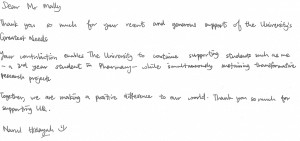 Dear Mr Mally
Thank you so much for your recent and generous support of the University's
Greatest Needs
Your contribution enables The University to continue supporting students such as me
- a 3rd year student in Pharmacy - while simultaneously sustaining transformative
research projects
Together, we are making a positive difference to our world. Thank you so much for
supporting
Nurul